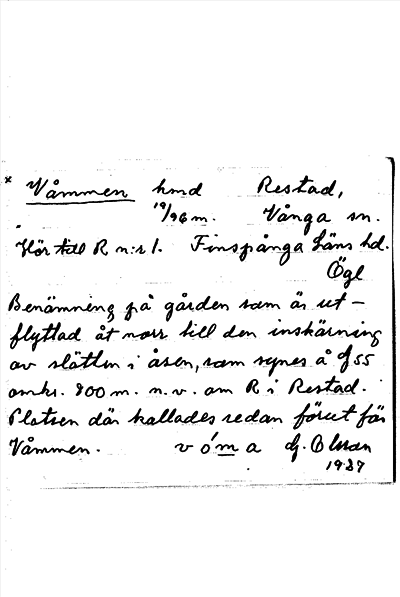 x Våmmen hmd Restad,
19/96 m. Vånga sn.
Hör till R n:r 1. Finspånga Läns hd.
Ögl
Benämning på gården som är ut-
flyttad åt norr till den inskärning
av slätten i åsen, som synes å Gf 55
omkr. 800 m. n. v. om R i Restad.
Platsen där kallades redan förut för
Våmmen. v ó m a G. Olsson
1937